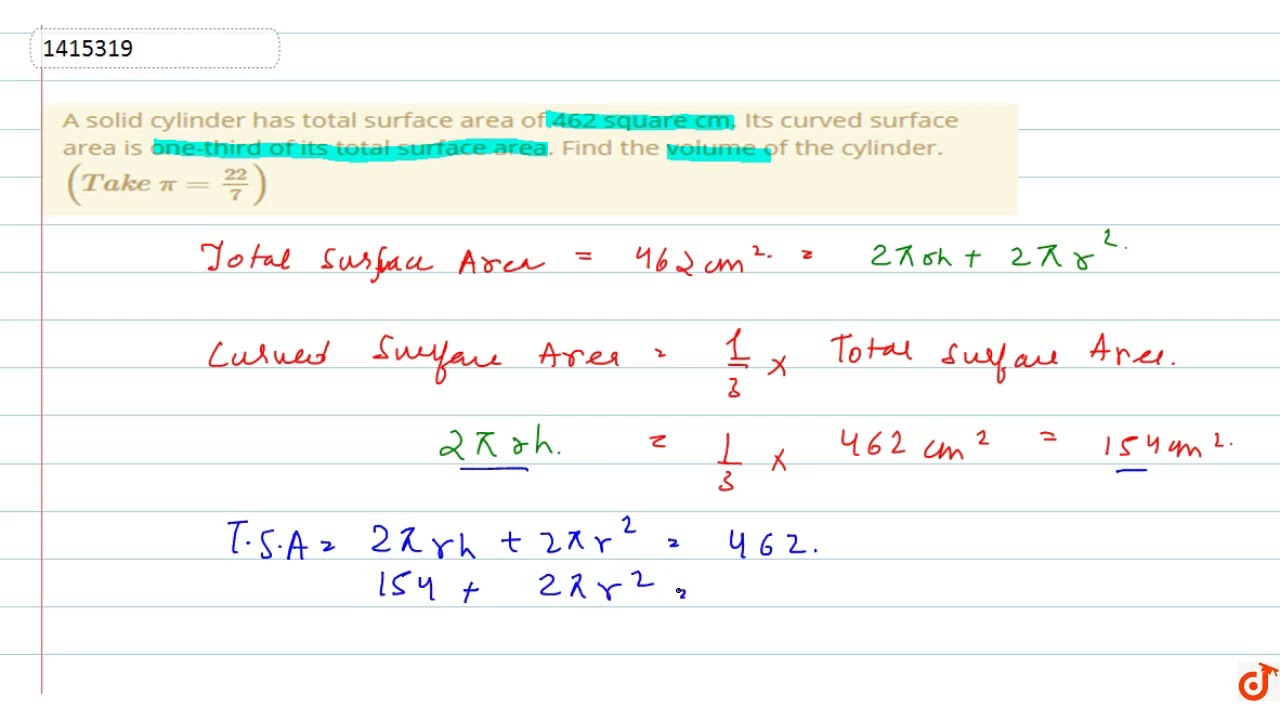 1415319
A solid cylinder has total surface area of 462 square cm. Its curved surface
area is one-third of its total surface area. Find the volume of the cylinder.
(Take π = 22/7)
Total Surface Area = 462 cm². = 2πrh + 2πr².
Curved Surface Area = 1/3 × Total Surface Area.
2πrh. = 1/3 × 462 cm² = 154 cm².
T.S.A = 2πrh + 2πr² = 462.
154 + 2πr² =